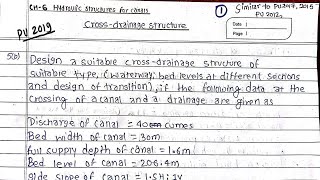 CH-6 Hydraulic structures for canals
① Similar to PU2017, 2015
PU 2012.
Cross-drainage structure
Date :
Page :
PU 2019
5(b) Design a suitable cross-drainage structure of
suitable type, (waterway, bed levels at different sections
and design of transition), if the following data at the
crossing of a canal and a drainage are given as
Discharge of canal = 40 cumes
Bed width of canal = 30m
full supply depth of canal = 1.6m
Bed level of canal = 206.4m
side slope of canal = 1.5H:1V